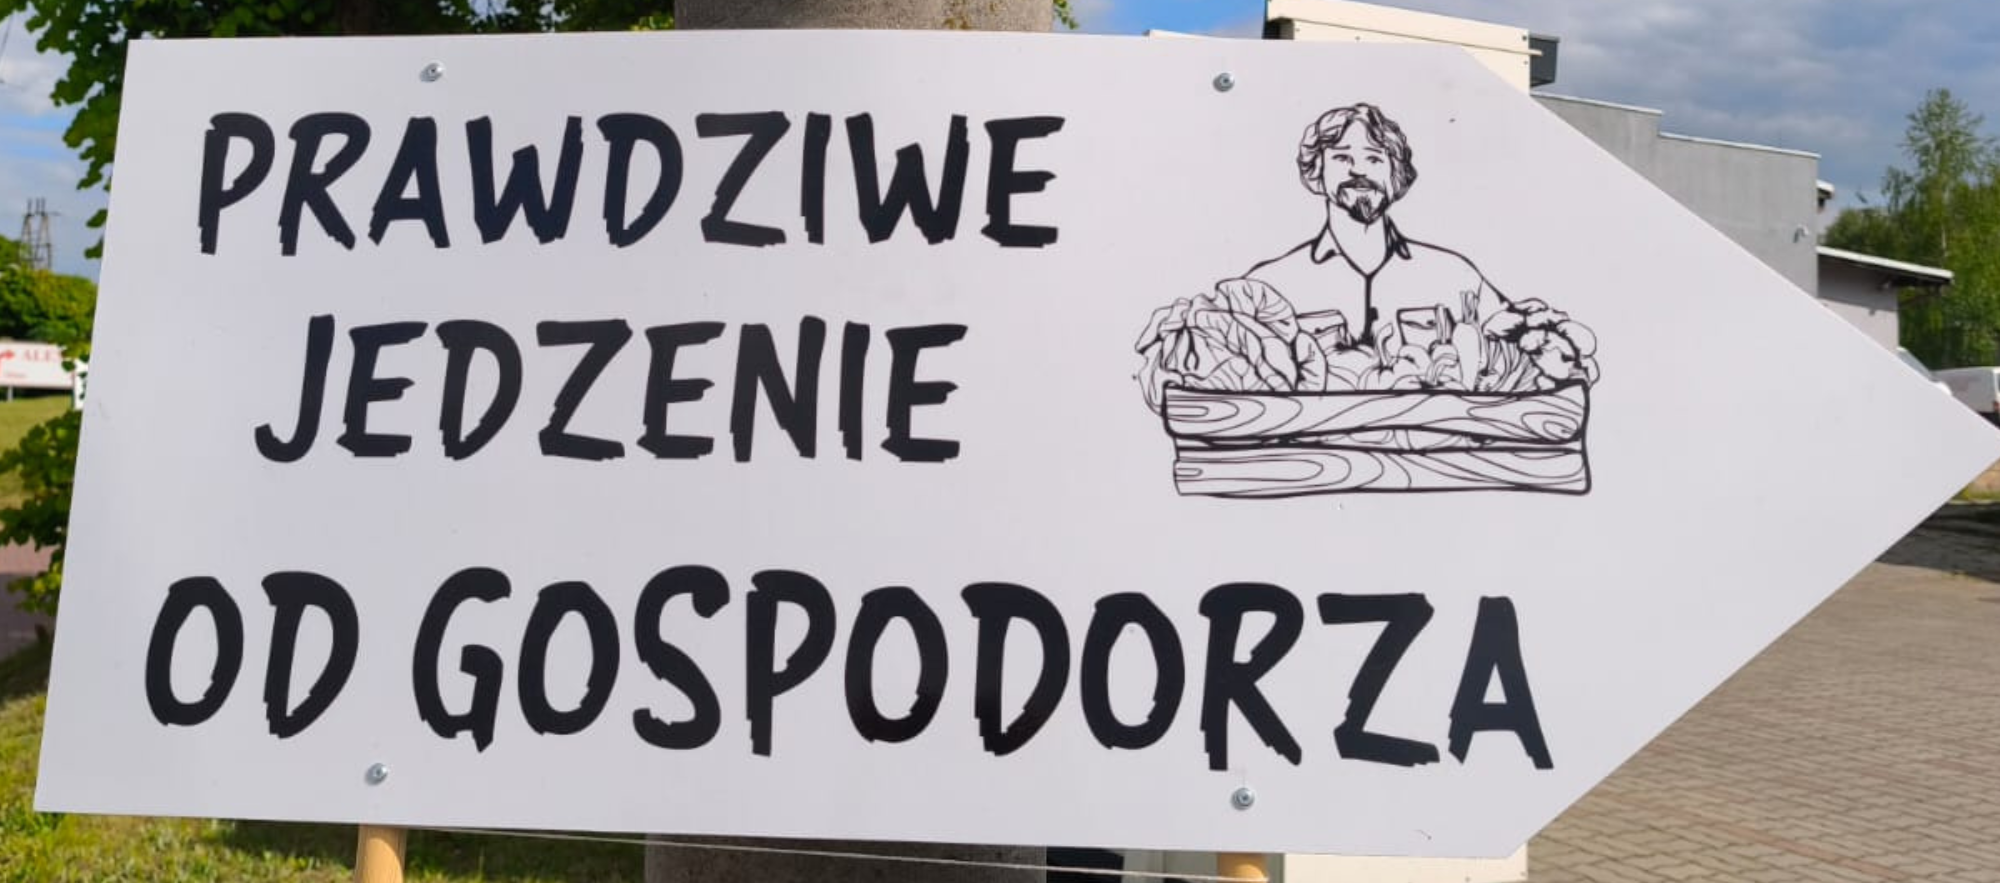 PRAWDZIWE
JEDZENIE
OD GOSPODORZA